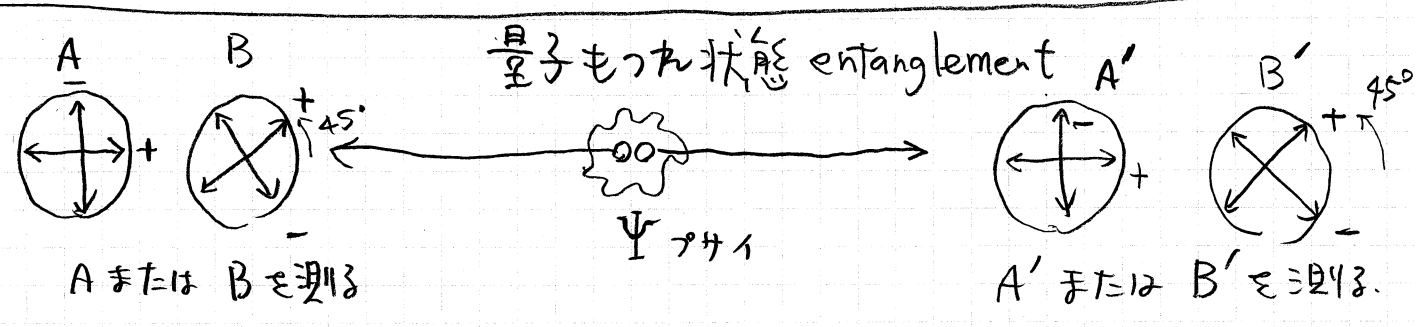 A B 量子もつれ状態 entanglement A′ B′
− + + 45° − − + + 45° −
Ψ プサイ
A または B を測る
A′ または B′ を測る.